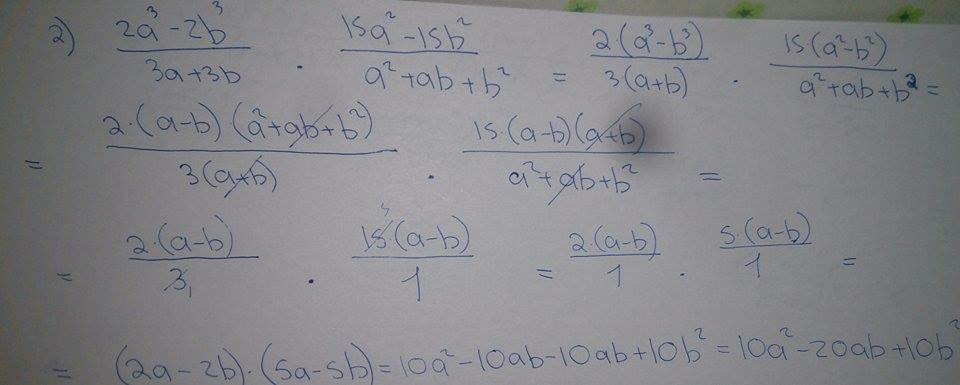 2) (2a³-2b³)/(3a+3b) · (15a²-15b²)/(a²+ab+b²) = 2(a³-b³)/3(a+b) · 15(a²-b²)/(a²+ab+b²) =
= 2·(a-b)(a²+ab+b²)/3(a+b) · 15·(a-b)(a+b)/(a²+ab+b²) =
= 2·(a-b)/3₁ · 15⁵·(a-b)/1 = 2·(a-b)/1 · 5·(a-b)/1 =
= (2a-2b)·(5a-5b)=10a²-10ab-10ab+10b²=10a²-20ab+10b²